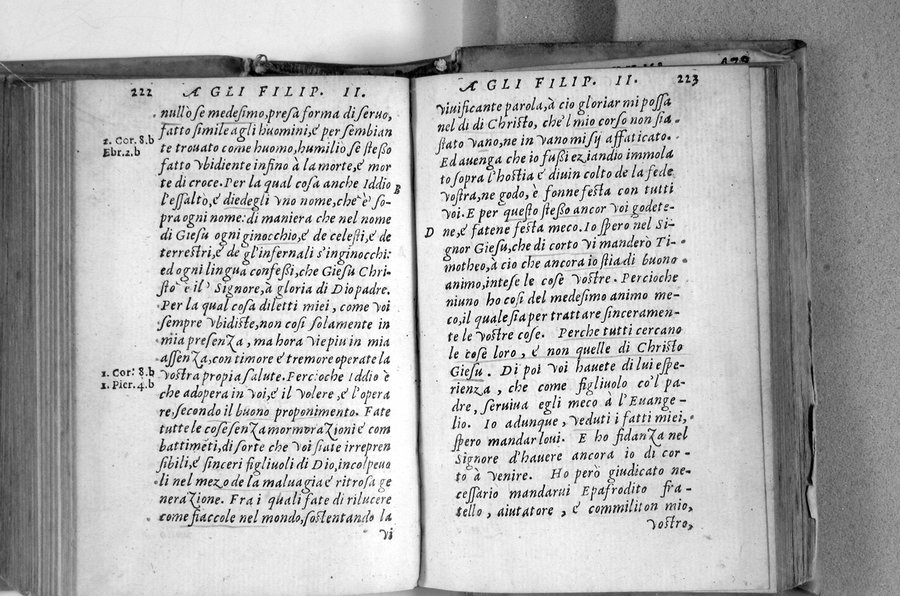 222 Æ GLI FILIP. II.
nullò se medesimo, presa forma di seruo,
fatto simile agli huomini, e per sembian
te trouato come huomo, humiliò se stesso
2. Cor. 8. b
Ebr. 2. b
fatto vbidiente infino à la morte, e mor
te di croce. Per la qual cosa anche Iddio
B
l'essaltò, e diedegli vno nome, che è so-
pra ogni nome: di maniera che nel nome
di Giesu ogni ginocchio, e de celesti, e de
terrestri, e de gl'infernali s'inginocchi:
ed ogni lingua confessi, che Giesù Chri-
sto è il Signore, à gloria di Dio padre.
Per la qual cosa diletti miei, come voi
sempre vbidiste, non cosi solamente in
mia presenza, ma hora vie piu in mia
assenza, con timore e tremore operate la
1. Cor: 8. b
1. Picr. 4. b
vostra propia salute. Percioche Iddio è
che adopera in voi, e il volere, e l'opera
re, secondo il buono proponimento. Fate
tutte le cose senza mormorazioni e com
battimēti, di sorte che voi siate irrepren
sibili, e sinceri figliuoli di Dio, incolpeuo
li nel mezo de la maluagia e ritrosa ge
nerazione. Fra i quali fate di rilucere
come fiaccole nel mondo, sostentando la
vi
Æ GLI FILIP. II. 223
viuificante parola, à cio gloriar mi possa
nel dì di Christo, che'l mio corso non sia
stato vano, ne in vano mi sy affaticato.
Ed auenga che io fussi eziandio immola
to sopra l'hostia e diuin colto de la fede
vostra, ne godo, è fonne festa con tutti
voi. E per questo stesso ancor voi godete-
D
ne, e fatene festa meco. Io spero nel Si-
gnor Giesu, che di corto vi manderò Ti-
motheo, à cio che ancora io stia di buono
animo, intese le cose vostre. Percioche
niuno ho cosi del medesimo animo me-
co, il quale sia per trattare sinceramen-
te le vostre cose. Perche tutti cercano
le cose loro, e non quelle di Christo
Giesu. Di poi voi hauete di lui espe-
rienza, che come figliuolo co'l pa-
dre, seruiua egli meco à l'Euange-
lio. Io adunque, veduti i fatti miei,
spero mandarloui. E ho fidanza nel
Signore d'hauere ancora io di cor-
to à venire. Ho però giudicato ne-
cessario mandarui Epafrodito fra-
tello, aiutatore, e commiliton mio,
vostro,